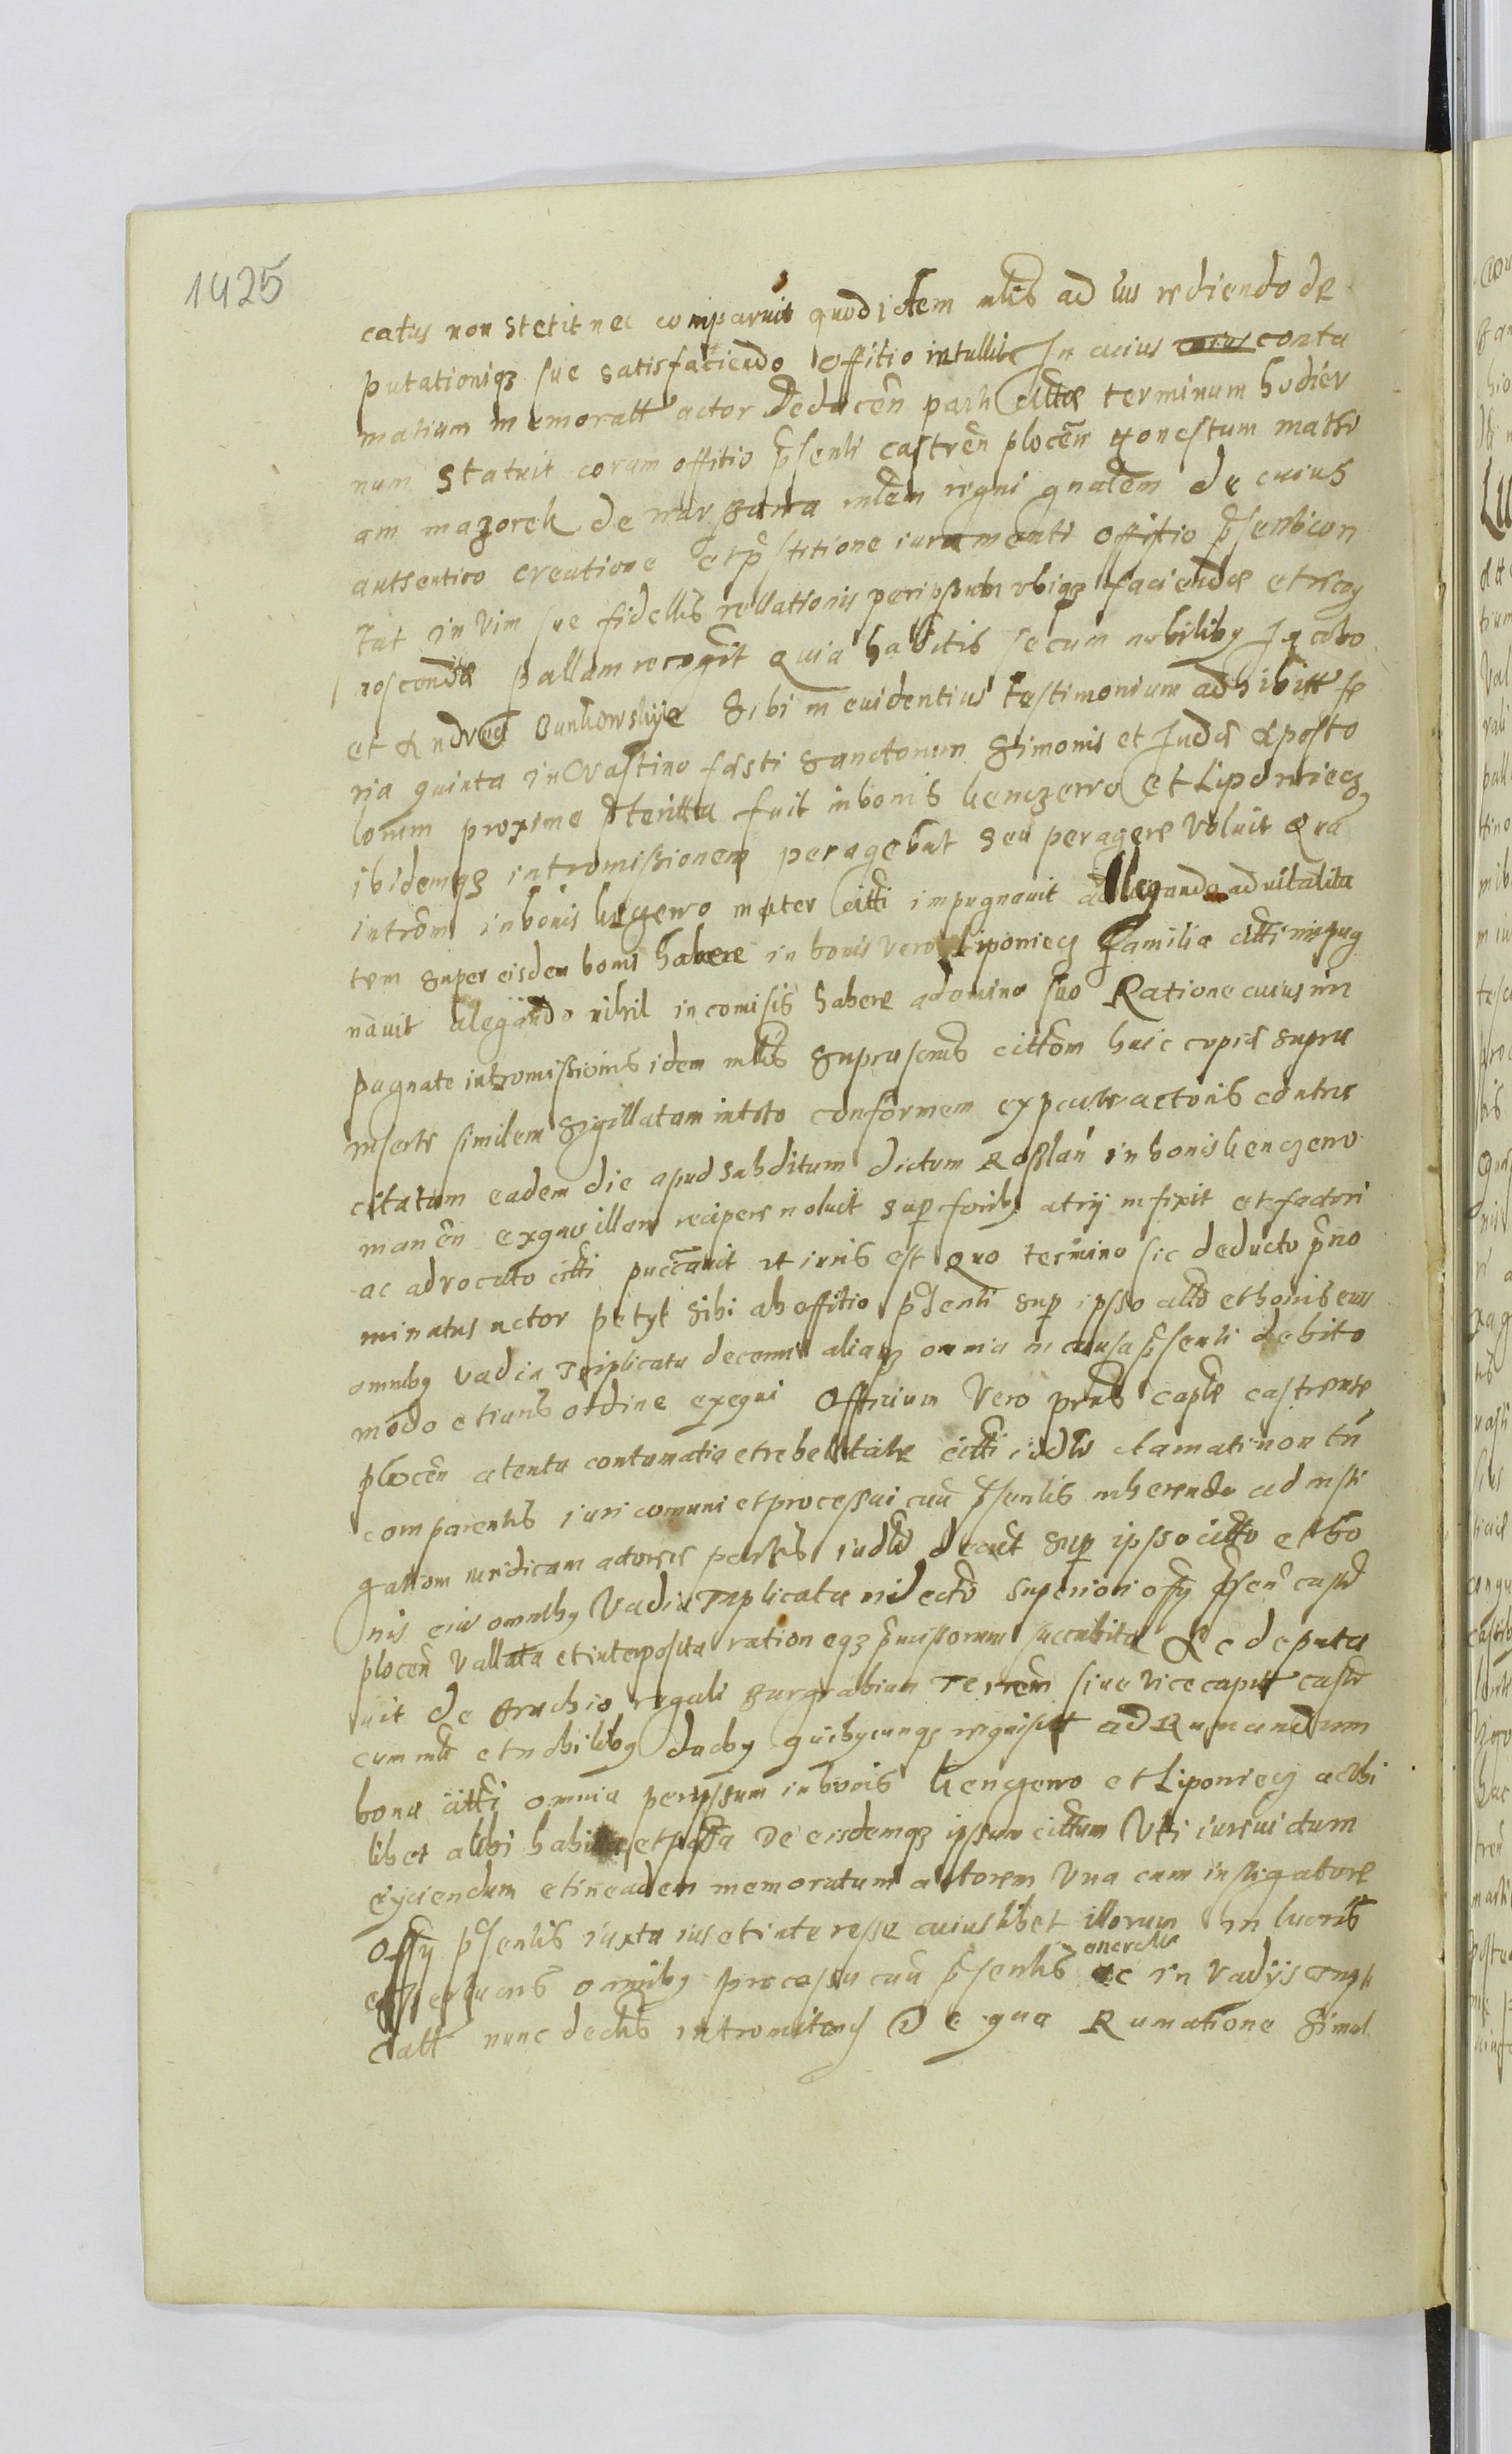 1425
catus non stetit nec comparuit quod idem mlis ad ius rediendo de
putationiqz sue satisfaciendo offitio intullit In cuius cuius contu
matium memoratt actor Deducen parti cittae terminum hodier
num statuit coram offitio pnsenti castren plocen Honestum mathi
am mazorek de warzawa mlem regni gnalem de cuius
authentico creatione et prstitione iuramenti offitio prsenti con
stat in vim sue fidellis rellationis per ipsum ubiqz faciendae et recog
noscendae pallam recognit Quia habitis secum nobiliby Jacobo
et Andrea Bunkowskye sibi in euidentius testimonium adhibitt fe
ria quinta in Crastino festi sanctorum Simonis et Judae Aposto
lorum proxime pteritta fuit in bonis henczewo et Liponiecz
ibidemqz intromissionem peragebat seu peragere voluit Qua
introm in bonis hegewo mater citti impugnauit allegando aduitalita
tem super eisdem bonis habere in bonis vero Liponiecz familia citti impug
nauit alegando nihil in comisis habere a domino suo Ratione cuius im
pugnate intromissionis idem mlis suprascrius cittom huic copiae supra
inserte similem sigillatam in toto conformem ex parte actoris contra
citatum eadem die apud subditum dictum Roslan in bonis henczewo
manen exquo illam recipere noluit sup foriby atrij infixit et factori
ac advocato citti puccauit ut iuris est Quo termino sic deducto prno
minatus actor petyt sibi ab offitio prsenti sup ipso citto et bonis eius
omniby vadia triplicata decerni aliaqz omnia in causa prsenti debito
modo et iuris ordine exequi Officium Vero prns caple castrense
plocen atenta contumatia et rebellitate citti iudlr clamati non tn
comparentis iuri comuni et processui cau prsentis inherendo ad insti
gationm iuridicam actoreae partis iudlr decreuit sup ipso citto et bo
nis eius omniby Vadia Triplicata videcto superiori offy prsen castr
plocen Vallata et interposita rationeqz prmissorum succubita Ac deputa
uit de brachio regali burgrabium Terrem siue vicecaput castr
cum mle et nobiliby duoby quibycunqz requisit ad Rumandum
bona citti omnia per ipsum in bonis henczewo et Liponiecz ac ubi
libet alibi habita et possa De eisdemqz ipsum cittum Uti iurevictum
eijciendum et in eadem memoratum actorem Vna cum instigatore
offy prsentis iuxta ius et interesse cuiuslibet illorum in lucris
ex lucris omniby processu cau prsentis oneralis ac in Vadijs tripli
catt nunc decris intromitend De qua Rumatione simul